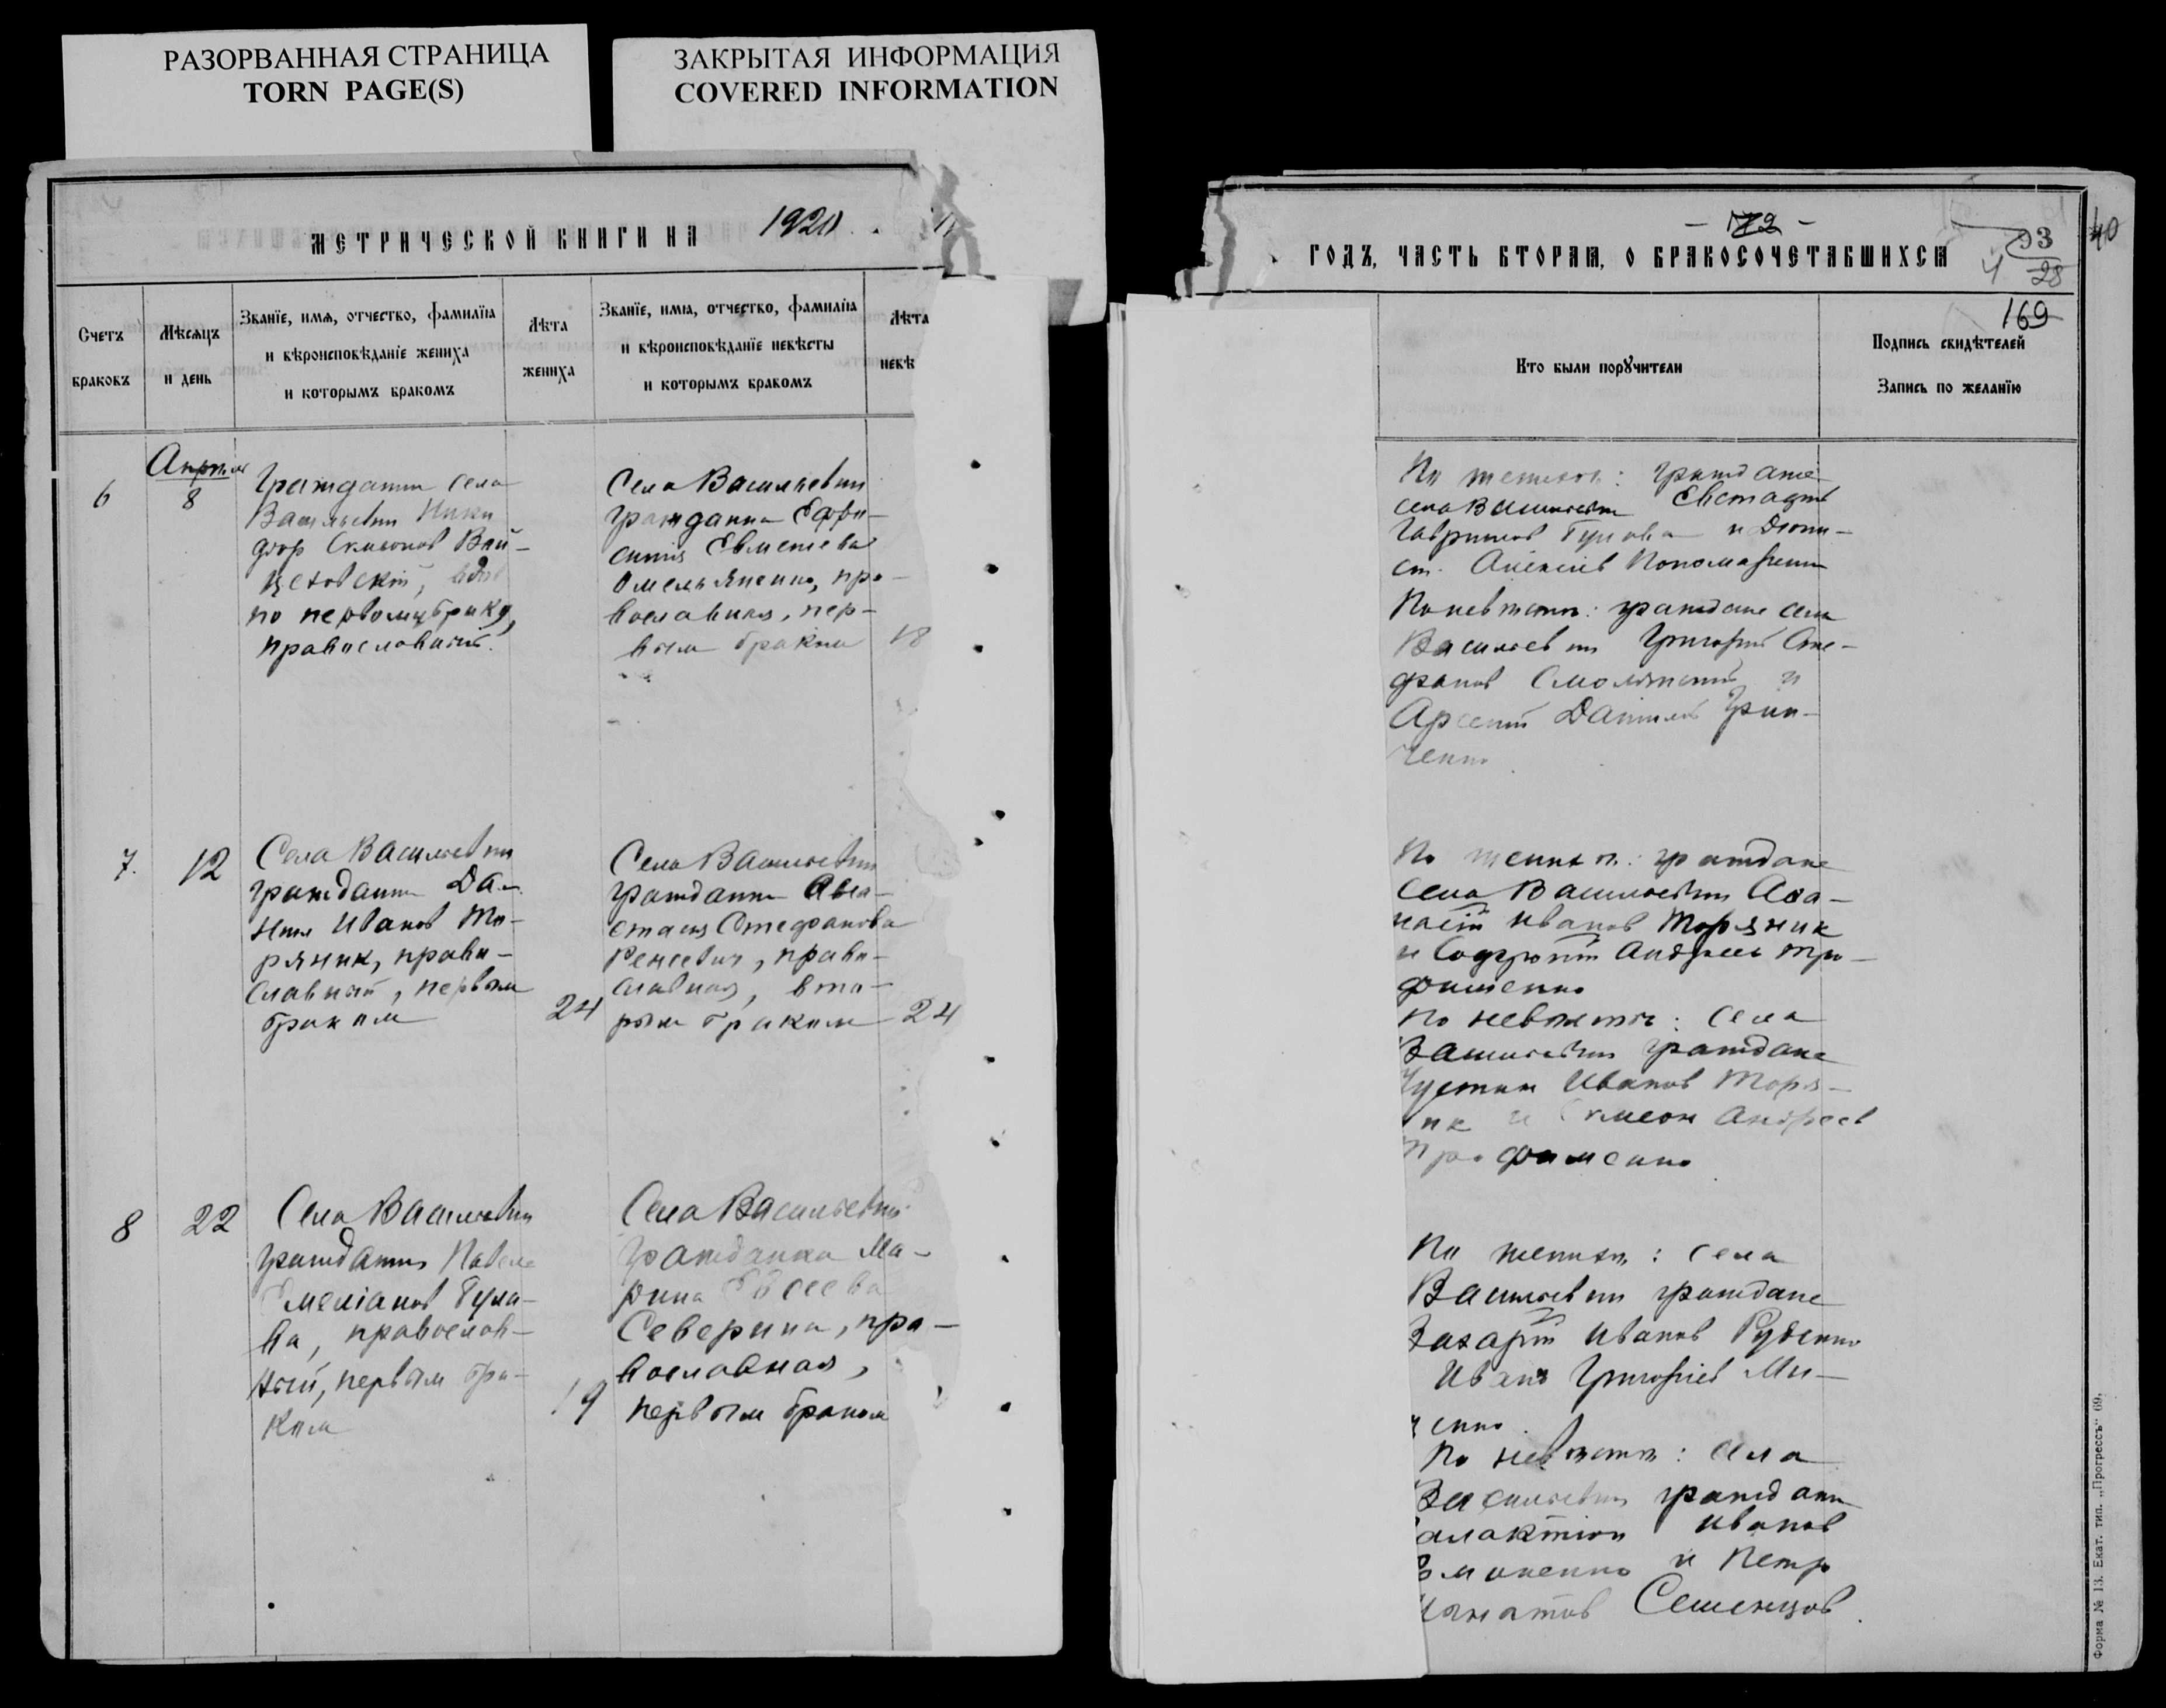 РАЗОРВАННАЯ СТРАНИЦА
TORN PAGE(S)
ЗАКРЫТАЯ ИНФОРМАЦИЯ
COVERED INFORMATION
МЕТРИЧЕСКОЙ КНИГИ НА 1920
Счетъ
браковъ
Мѣсяцъ
и день
Званїе, имѧ, отчество, фамилїѧ
и вѣроисповѣданїе жениха
и которымъ бракомъ
Лѣта
жениха
Званїе, имѧ, отчество, фамилїѧ
и вѣроисповѣданїе невѣсты
и которымъ бракомъ
Лѣта
невѣ
6
Апрель
8
Гражданин села
Васильевки Ники
фор Симеонов Вой-
цеховский, вдов
по первому браку,
православный.
Села Васильевки
гражданка Ефро-
синия Евменева
Омельяненко, пра-
вославная, пер-
вым браком 18
7.
12
Села Васильевки
гражданин Да-
нил Иванов То-
ряник, право-
славный, первым
браком
24
Села Васильевки
гражданка Ана-
стасия Стефанова
православная, вто-
рым браком 24
8
22
Села Васильевки
гражданин Павел
Емелианов Гула-
ва, православ-
ный, первым бра-
ком
19
Села Васильевки
гражданка Ма-
рина Евсеева
Северина, пра-
вославная,
первым браком
- 172 -
ГОДЪ, ЧАСТЬ ВТОРАЯ, О БРАКОСОЧЕТАВШИХСЯ
93
4
28
40
169
Кто были порꙋчители
Подпись свидѣтелей
Запись по желанїю
По женихе: граждане
села Васильевки Евстафий
Гаврилов Гулава и Диони-
сий Алексеев Пономаренко
По невесте: граждане села
Васильевки Григорий Сте-
фанов и
Арсений Данилов Грин-
ченко
По женихе: граждане
села Васильевки Афа-
насий Иванов Торяник
и Софроний Андреев Тро-
фименко
По невесте: села
Васильевки граждане
Иустин Иванов Торя-
ник и Симеон Андреев
Трофименко
По женихе: села
Васильевки граждане
Захарий Иванов Руденко
Иван Григориев Ми-
енко.
По невесте: села
Васильевки граждане
алактион Иванов
и Петр
Игнатов Семенцов.
Форма № 13. Екат. тип. „Прогрессъ“ 69.